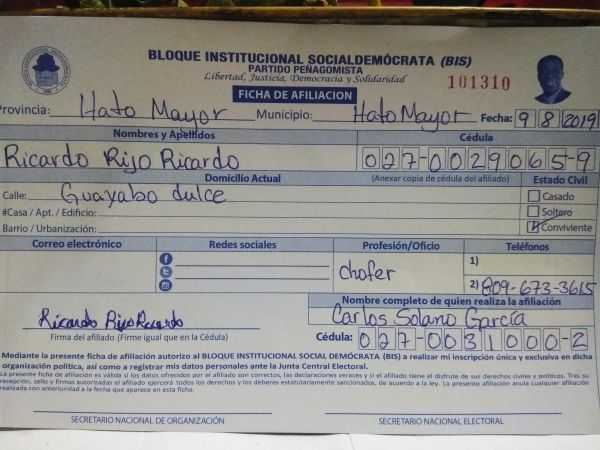 BLOQUE INSTITUCIONAL SOCIALDEMÓCRATA (BIS)
PARTIDO PEÑAGOMISTA
Libertad, Justicia, Democracia y Solidaridad
101310
FICHA DE AFILIACION
Provincia: Hato Mayor Municipio: Hato Mayor Fecha: 9 8 2019
Nombres y Apellidos Cédula
Ricardo Rijo Ricardo 027-0029065-9
Domicilio Actual (Anexar copia de cédula del afiliado) Estado Civil
Calle: Guayabo dulce Casado
#Casa / Apt. / Edificio: Soltero
Barrio / Urbanización: Conviviente
Correo electrónico Redes sociales Profesión/Oficio Teléfonos
chofer 1)
2) 809-673-3615
Nombre completo de quien realiza la afiliación
Ricardo Rijo Ricardo Carlos Solano García
Firma del afiliado (Firme igual que en la Cédula) Cédula: 027-0031000-2
Mediante la presente ficha de afiliación autorizo al BLOQUE INSTITUCIONAL SOCIAL DEMÓCRATA (BIS) a realizar mi inscripción única y exclusiva en dicha
organización política, así como a registrar mis datos personales ante la Junta Central Electoral.
La presente ficha de afiliación es válida si los datos ofrecidos por el afiliado son correctos, las declaraciones veraces y si el afiliado tiene el disfrute de sus derechos civiles y políticos. Tras su
recepción, sello y firmas autorizadas el afiliado ejercerá todos los derechos y los deberes estatutariamente sancionados, de acuerdo a la ley. La presente afiliación anula cualquier afiliación
realizada con anterioridad a la fecha que aparece en esta ficha.
SECRETARIO NACIONAL DE ORGANIZACIÓN SECRETARIO NACIONAL ELECTORAL